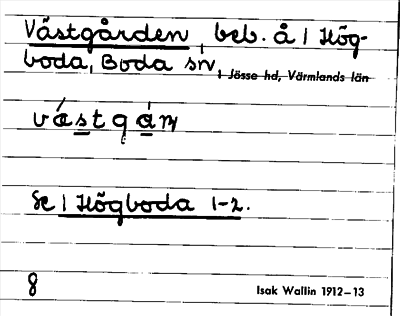 Västgården, beb. å 1 Hög-
boda, Boda sn, Jösse hd, Värmlands län
vá̈stgàɳ
Se 1 Högboda 1-2.
8
Isak Wallin 1912–13